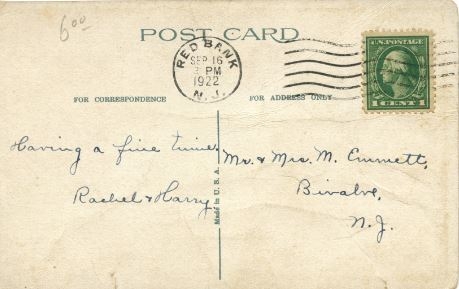 6.00
POST CARD
RED BANK
SEP 16
PM
1922
N.J.
U.S. POSTAGE
1 CENT 1
FOR CORRESPONDENCE
FOR ADDRESS ONLY
Having a fine time.
Rachel & Harry
Made in U.S.A.
Mr. & Mrs. M. Emmett,
Bivalve,
N.J.